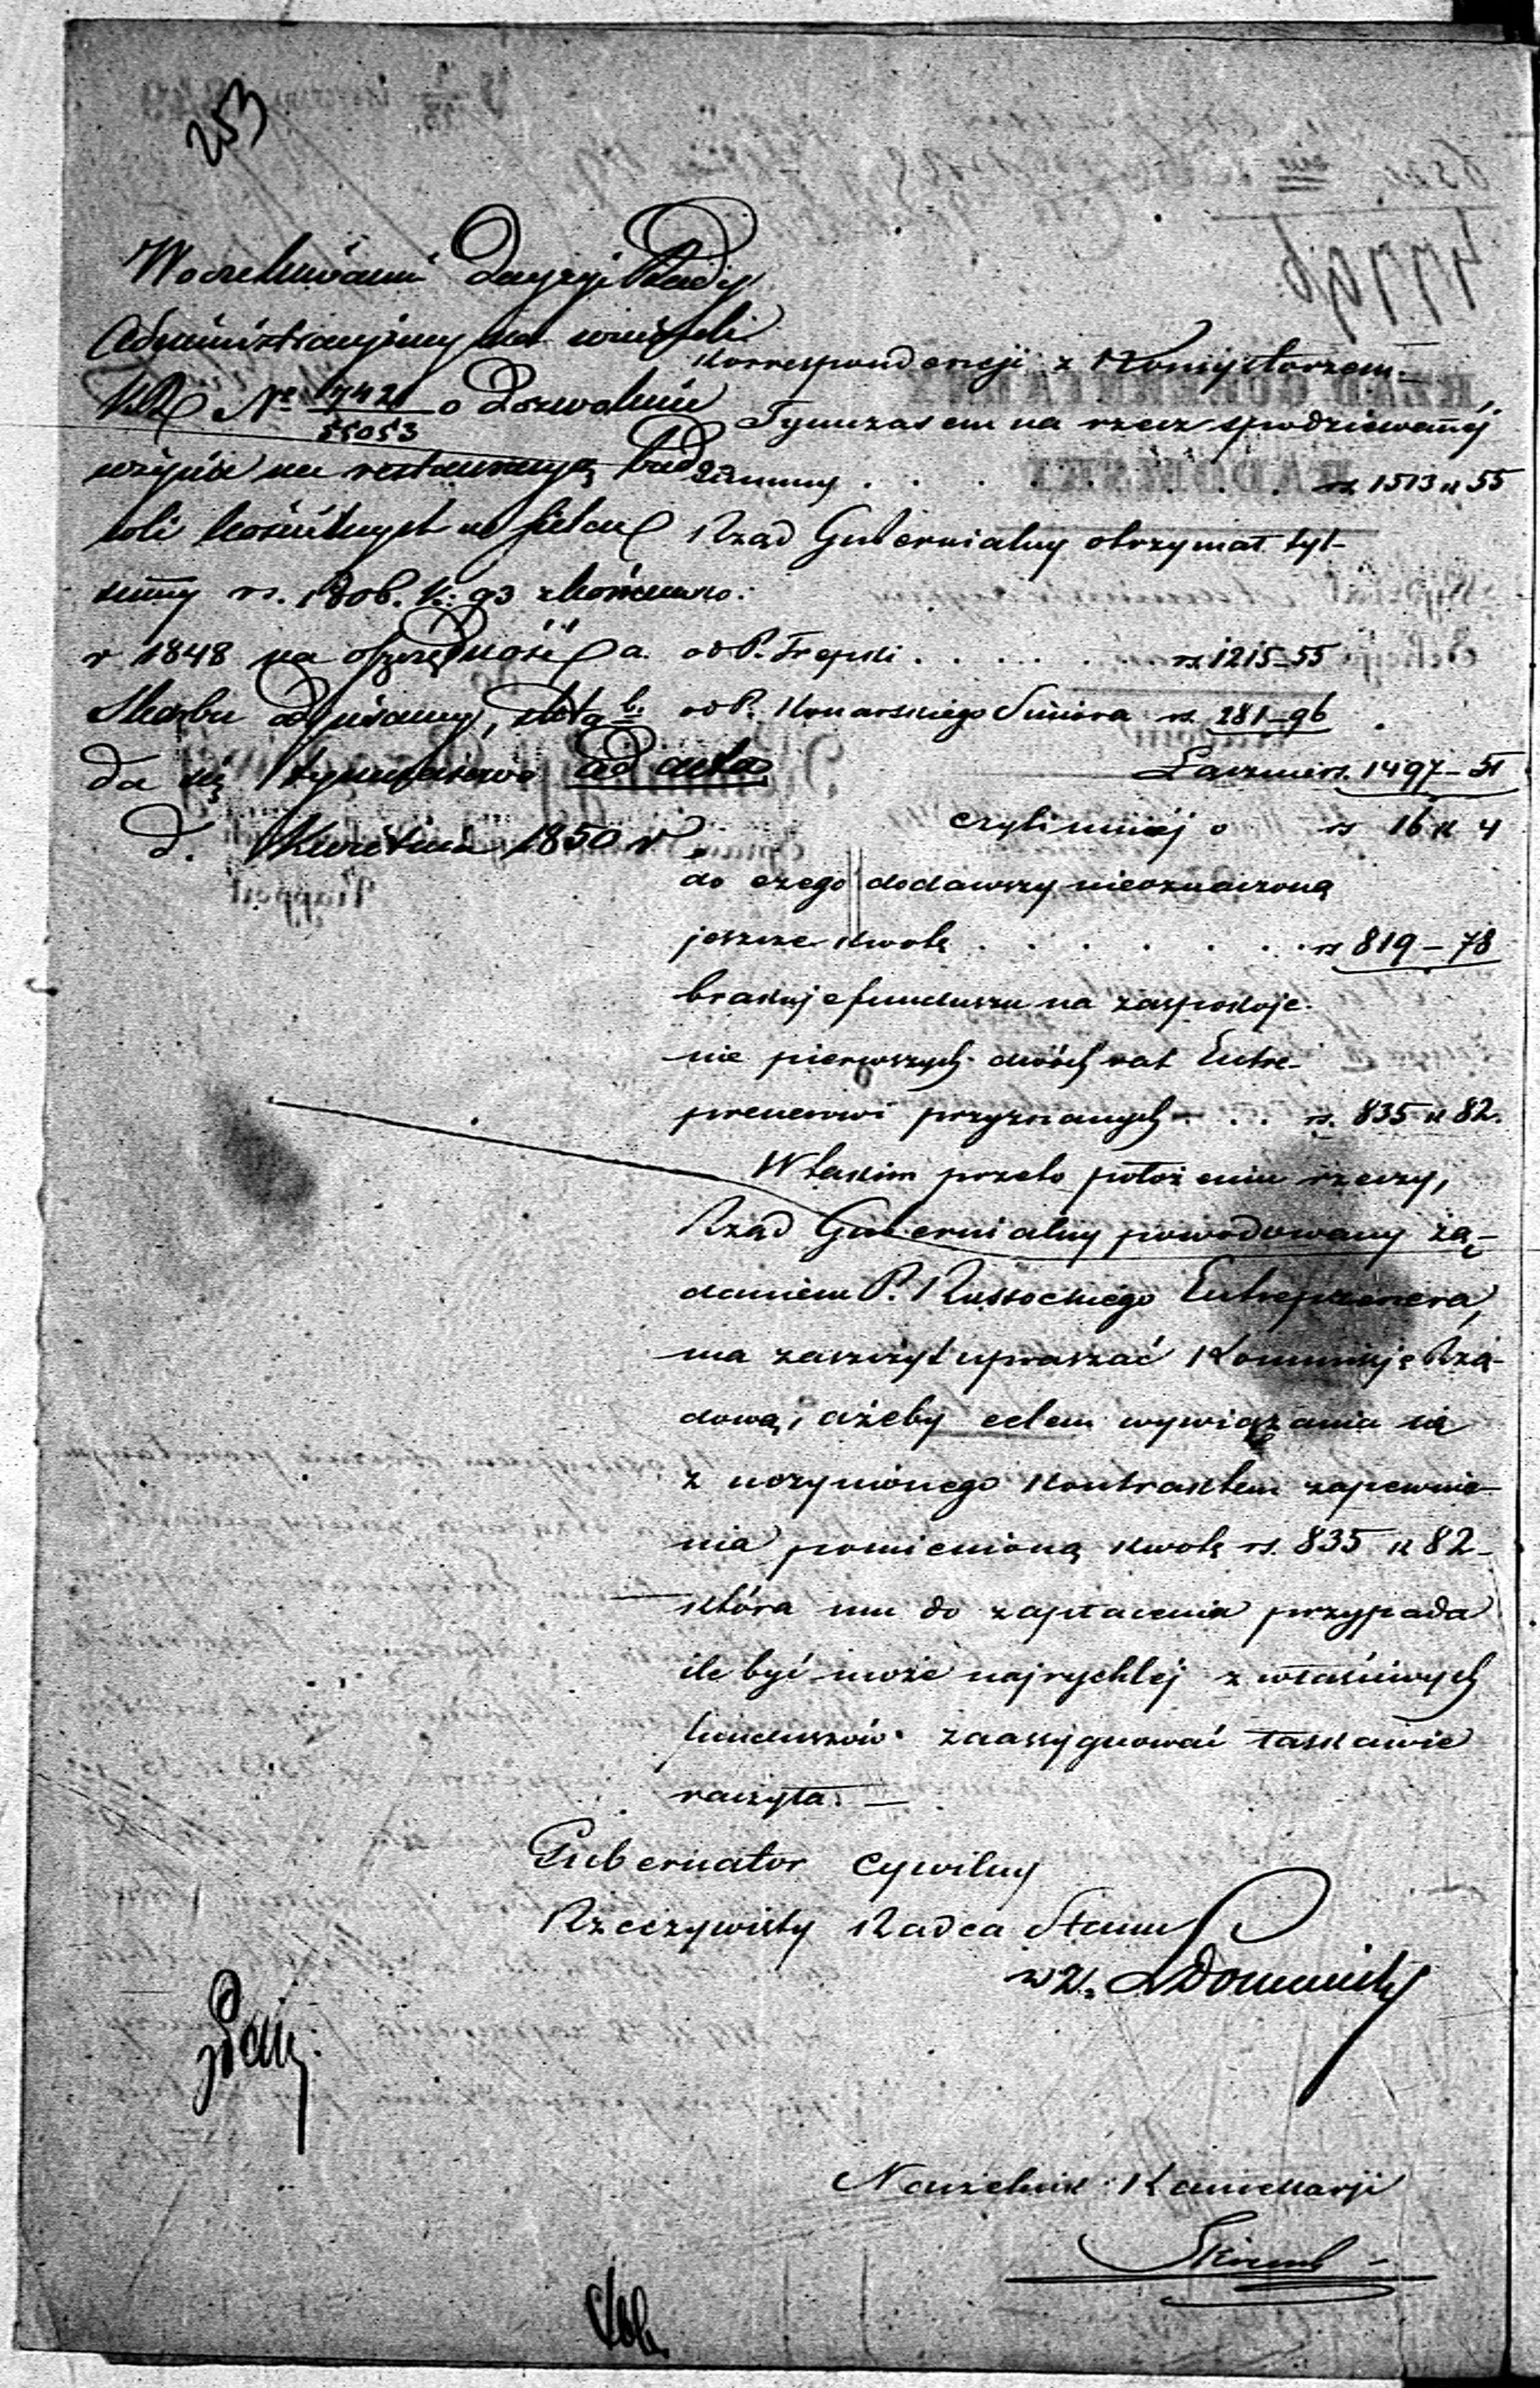 253
W oczekiwaniu Decyzyi Rady
Administracyjnej na wniosek
KR No 17421/55053 o dozwolenie
użycia na restauracyą bud
soli kościelnych w
summy rs. 1306. k. 93 z końcem
r 1848 na oszczędność
Skarbu odpisanej, składa
da się tymczasowo ad acta
d. Kwietnia 1850 r.
korrespondencji z Konsystorzem.
Tymczasem na rzecz spodziewanéj
summy . . . . rs 1513 k 55
Rząd Gubernialny otrzymał tyl-
ko
a. od P. Trepki . . . . . rs. 1215-55
b. od P. Konarskiego Seniora rs. 281-96
Łącznie rs. 1497-51
czyli mniej o rs 16 k 4
do czego dodawszy nieoznaczoną
jeszcze kwotę . . . . . . rs 819-78
brakuje funduszu na zaspokoje-
nie pierwszych dwóch rat Entre-
prenerowi przyznanych . . . rs. 835 k 82.
W takim przeto położeniu rzeczy,
Rząd Gubernialny powodowany żą-
daniem P. Russockiego Entreprenera,
ma zaszczyt upraszać Kommissję Rzą-
dową, ażeby celem wywiązania się
z uczynionego kontraktem zapewnie-
nia pomienioną kwotę rs. 835 k 82
która mu do zapłacenia przypada
ile być może najrychlej z właściwych
funduszów zaassygnować łaskawie
raczyła. —
Gubernator Cywilny
Rzeczywisty Radca Stanu
w z.
Naczelnik Kancellarji